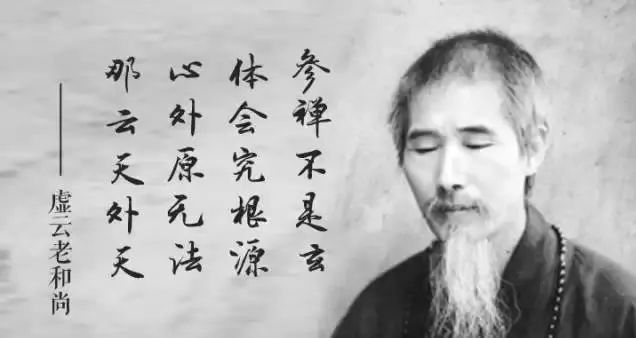 参禅不是玄
体会究根源
心外原无法
那云天外天
——虚云老和尚